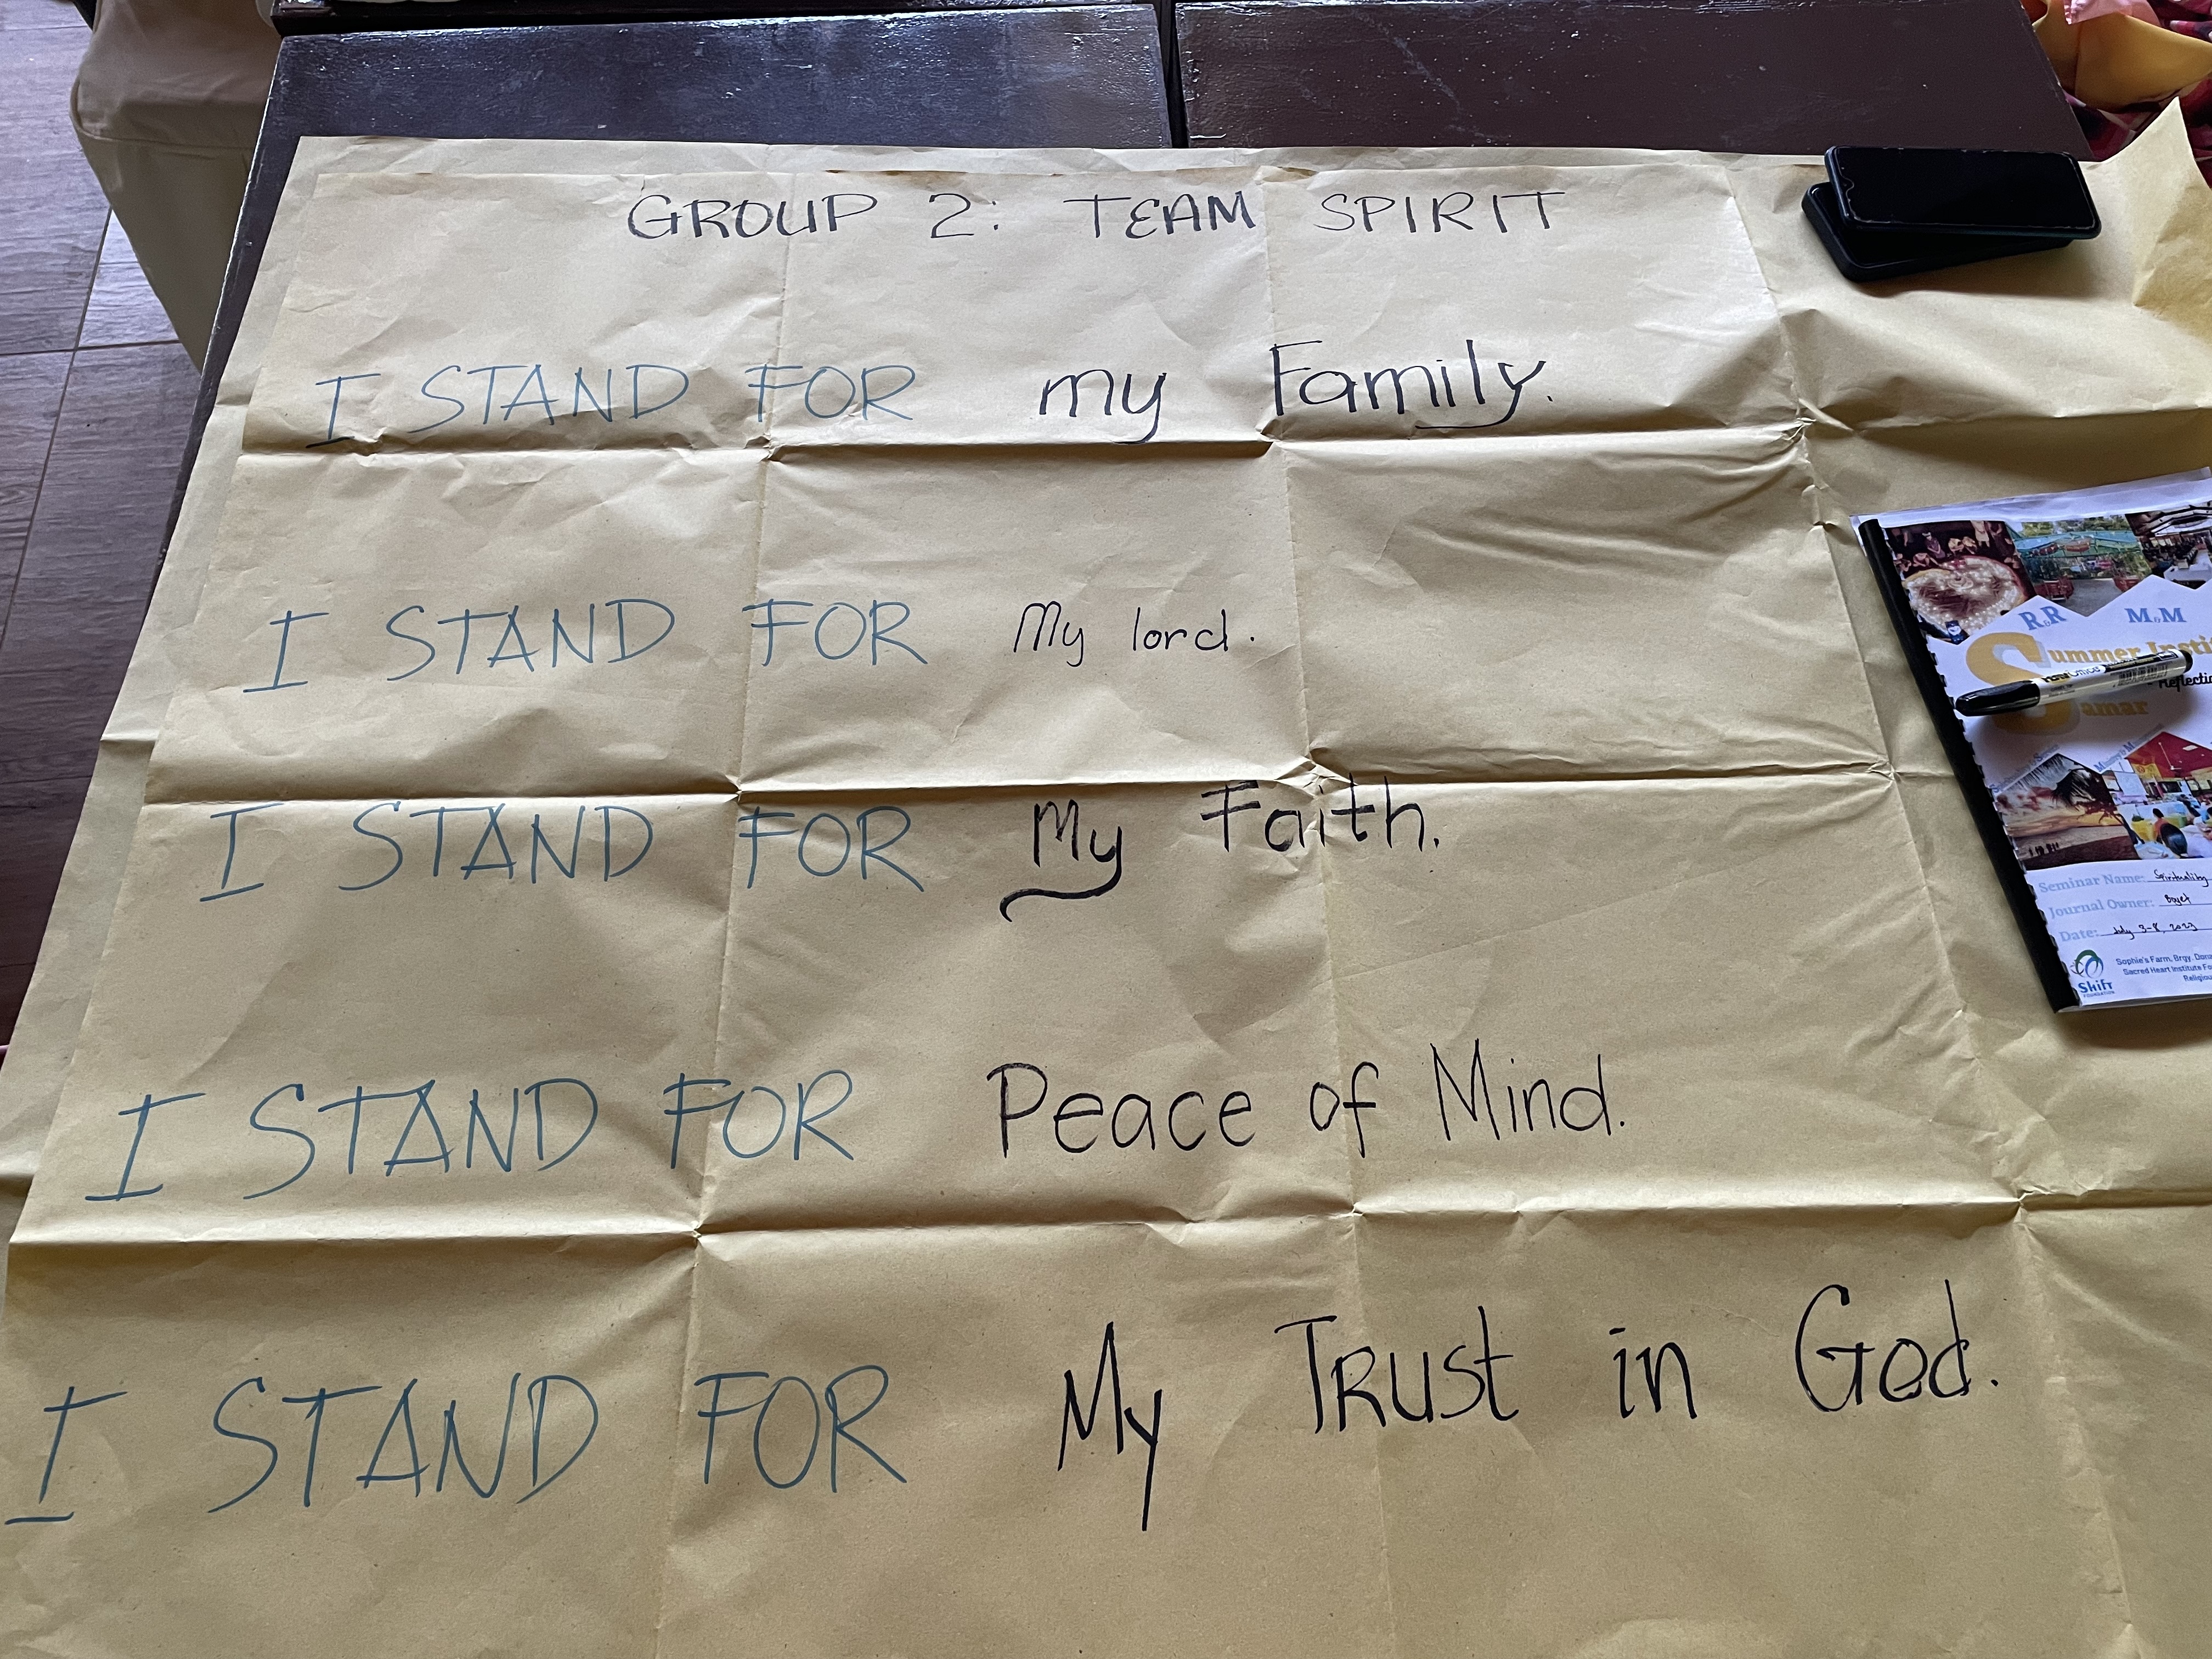 GROUP 2: TEAM SPIRIT
I STAND FOR my Family.
I STAND FOR My lord.
I STAND FOR My Faith.
I STAND FOR Peace of Mind.
I STAND FOR My TRUST in God.
R&R M&M
Summer
Samar
Seminar Name: Spirituality
Journal Owner:
Date: July 3-8, 2023
Sophie's Farm, Brgy.
Sacred Heart Institute
Religious
Shift
FOUNDATION